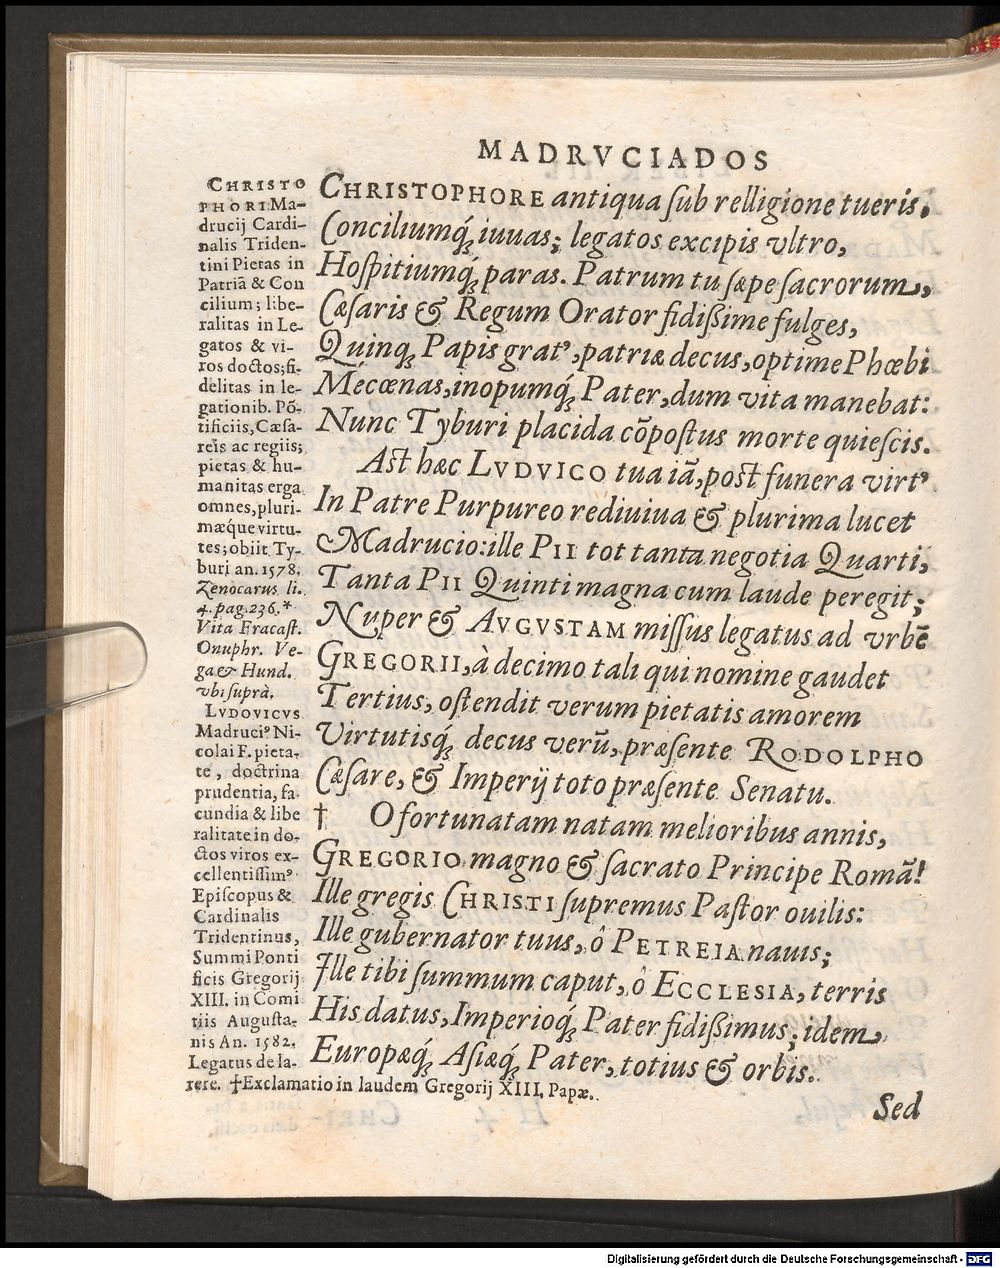 MADRVCIADOS
CHRISTOPHORE antiqua ſub relligione tueris,
Conciliumq́ꝫ iuuas; legatos excipis vltro,
Hoſpitiumq́ꝫ paras. Patrum tu ſæpe ſacrorum,
Cæſaris & Regum Orator fidißime fulges,
Quinqꝫ Papis gratꝰ, patriæ decus, optime Phœbi
Mécœnas, inopumq́ꝫ Pater, dum vita manebat:
Nunc Tyburi placida cōpoſtus morte quieſcis.
Aſt hæc LVDVICO tua iā, poſt funera virtꝰ
In Patre Purpureo rediuiua & plurima lucet
Madrucio: ille PII tot tanta negotia Quarti,
Tanta PII Quinti magna cum laude peregit;
Nuper & AVGVSTAM miſſus legatus ad vrbē
GREGORII, à decimo tali qui nomine gaudet
Tertius, oſtendit verum pietatis amorem
Virtutisq́ꝫ decus verū, præſente RODOLPHO
Cæſare, & Imperij toto præſente Senatu.
† O fortunatam natam melioribus annis,
GREGORIO magno & ſacrato Principe Romā!
Ille gregis CHRISTI ſupremus Paſtor ouilis:
Ille gubernator tuus, ô PETREIA nauis;
Ille tibi ſummum caput, ô ECCLESIA, terris
His datus, Imperioq́ꝫ Pater fidißimus; idem
Europæq́ꝫ Aſiæq́ꝫ Pater, totius & orbis.
CHRISTO
PHORI Ma-
drucij Cardi-
nalis Triden-
tini Pietas in
Patriā & Con
cilium; libe-
ralitas in Le-
gatos & vi-
ros doctos; fi-
delitas in le-
gationib. Pō-
tificiis, Cæſa-
reis ac regiis;
pietas & hu-
manitas erga
omnes, pluri-
mæque virtu-
tes; obiit Ty-
buri an. 1578.
Zenocarus li.
4. pag. 236.*
Vita Fracaſt.
Onuphr. Ve-
ga & Hund.
vbi ſuprà.
LVDOVICVS
Madruciꝰ Ni-
colai F. pieta-
te, doctrina
prudentia, fa
cundia & libe
ralitate in do-
ctos viros ex-
cellentiſſimꝰ
Epiſcopus &
Cardinalis
Tridentinus,
Summi Ponti
ficis Gregorij
XIII. in Comi
tiis Auguſta-
nis An. 1582.
Legatus de la-
tere. †Exclamatio in laudem Gregorij XIII. Papæ.
Sed
Digitalisierung gefördert durch die Deutsche Forschungsgemeinschaft - DFG